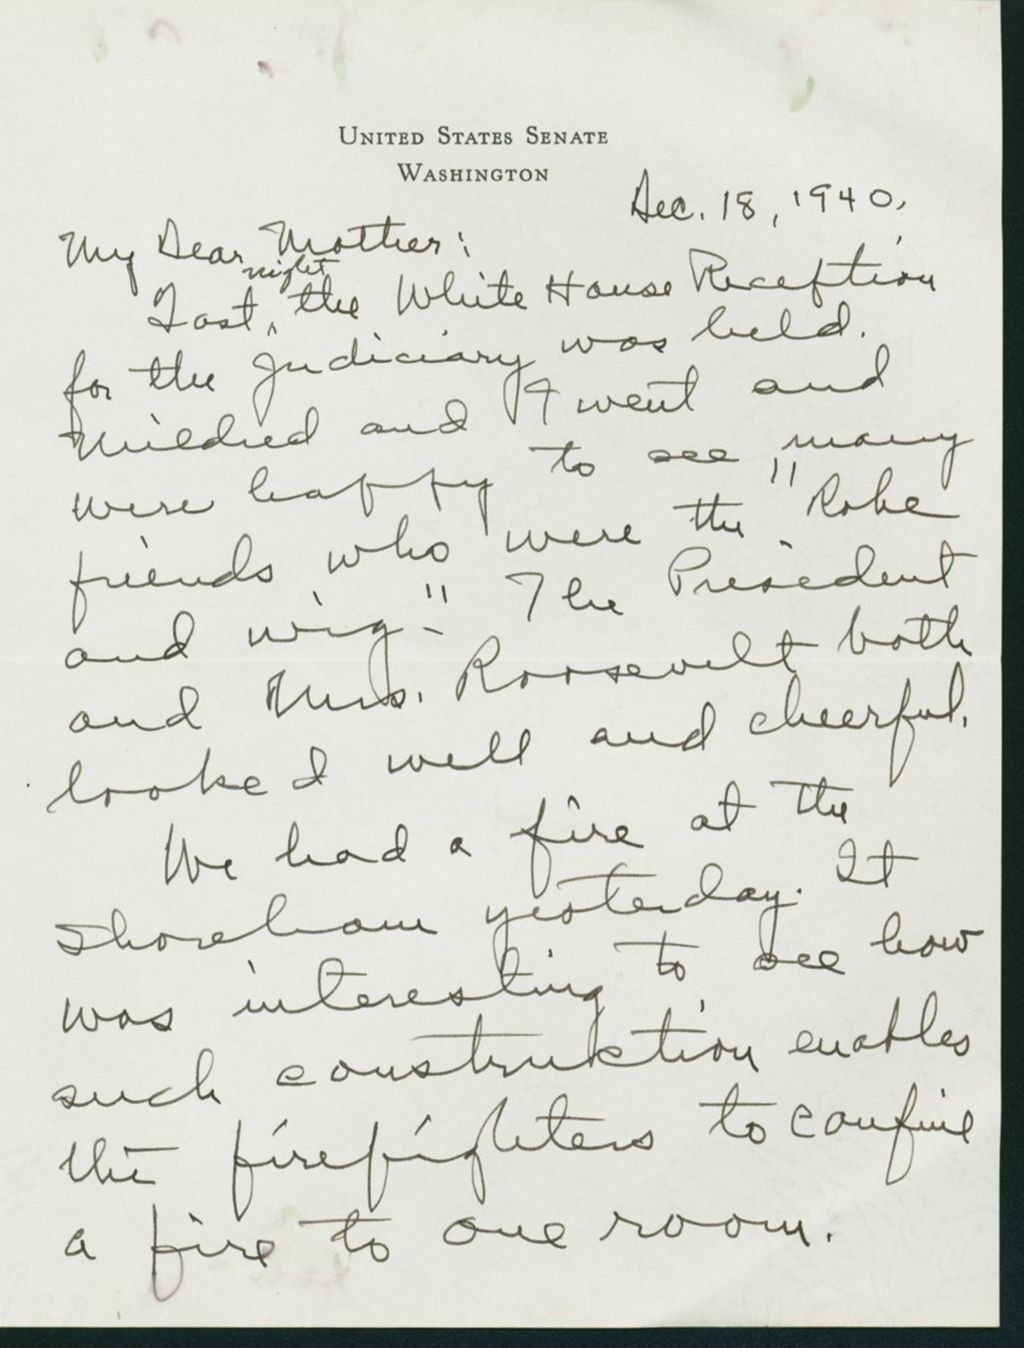 UNITED STATES SENATE
WASHINGTON
Dec. 18, 1940.
My Dear Mother:
Last night the White House Reception
for the Judiciary was held.
Mildred and I went and
were happy to see many
friends who were the "Robe
and wig." The President
and Mrs. Roosevelt both
looked well and cheerful.
We had a fire at the
Shoreham yesterday. It
was interesting to see how
such construction enables
the firefighters to confine
a fire to one room.